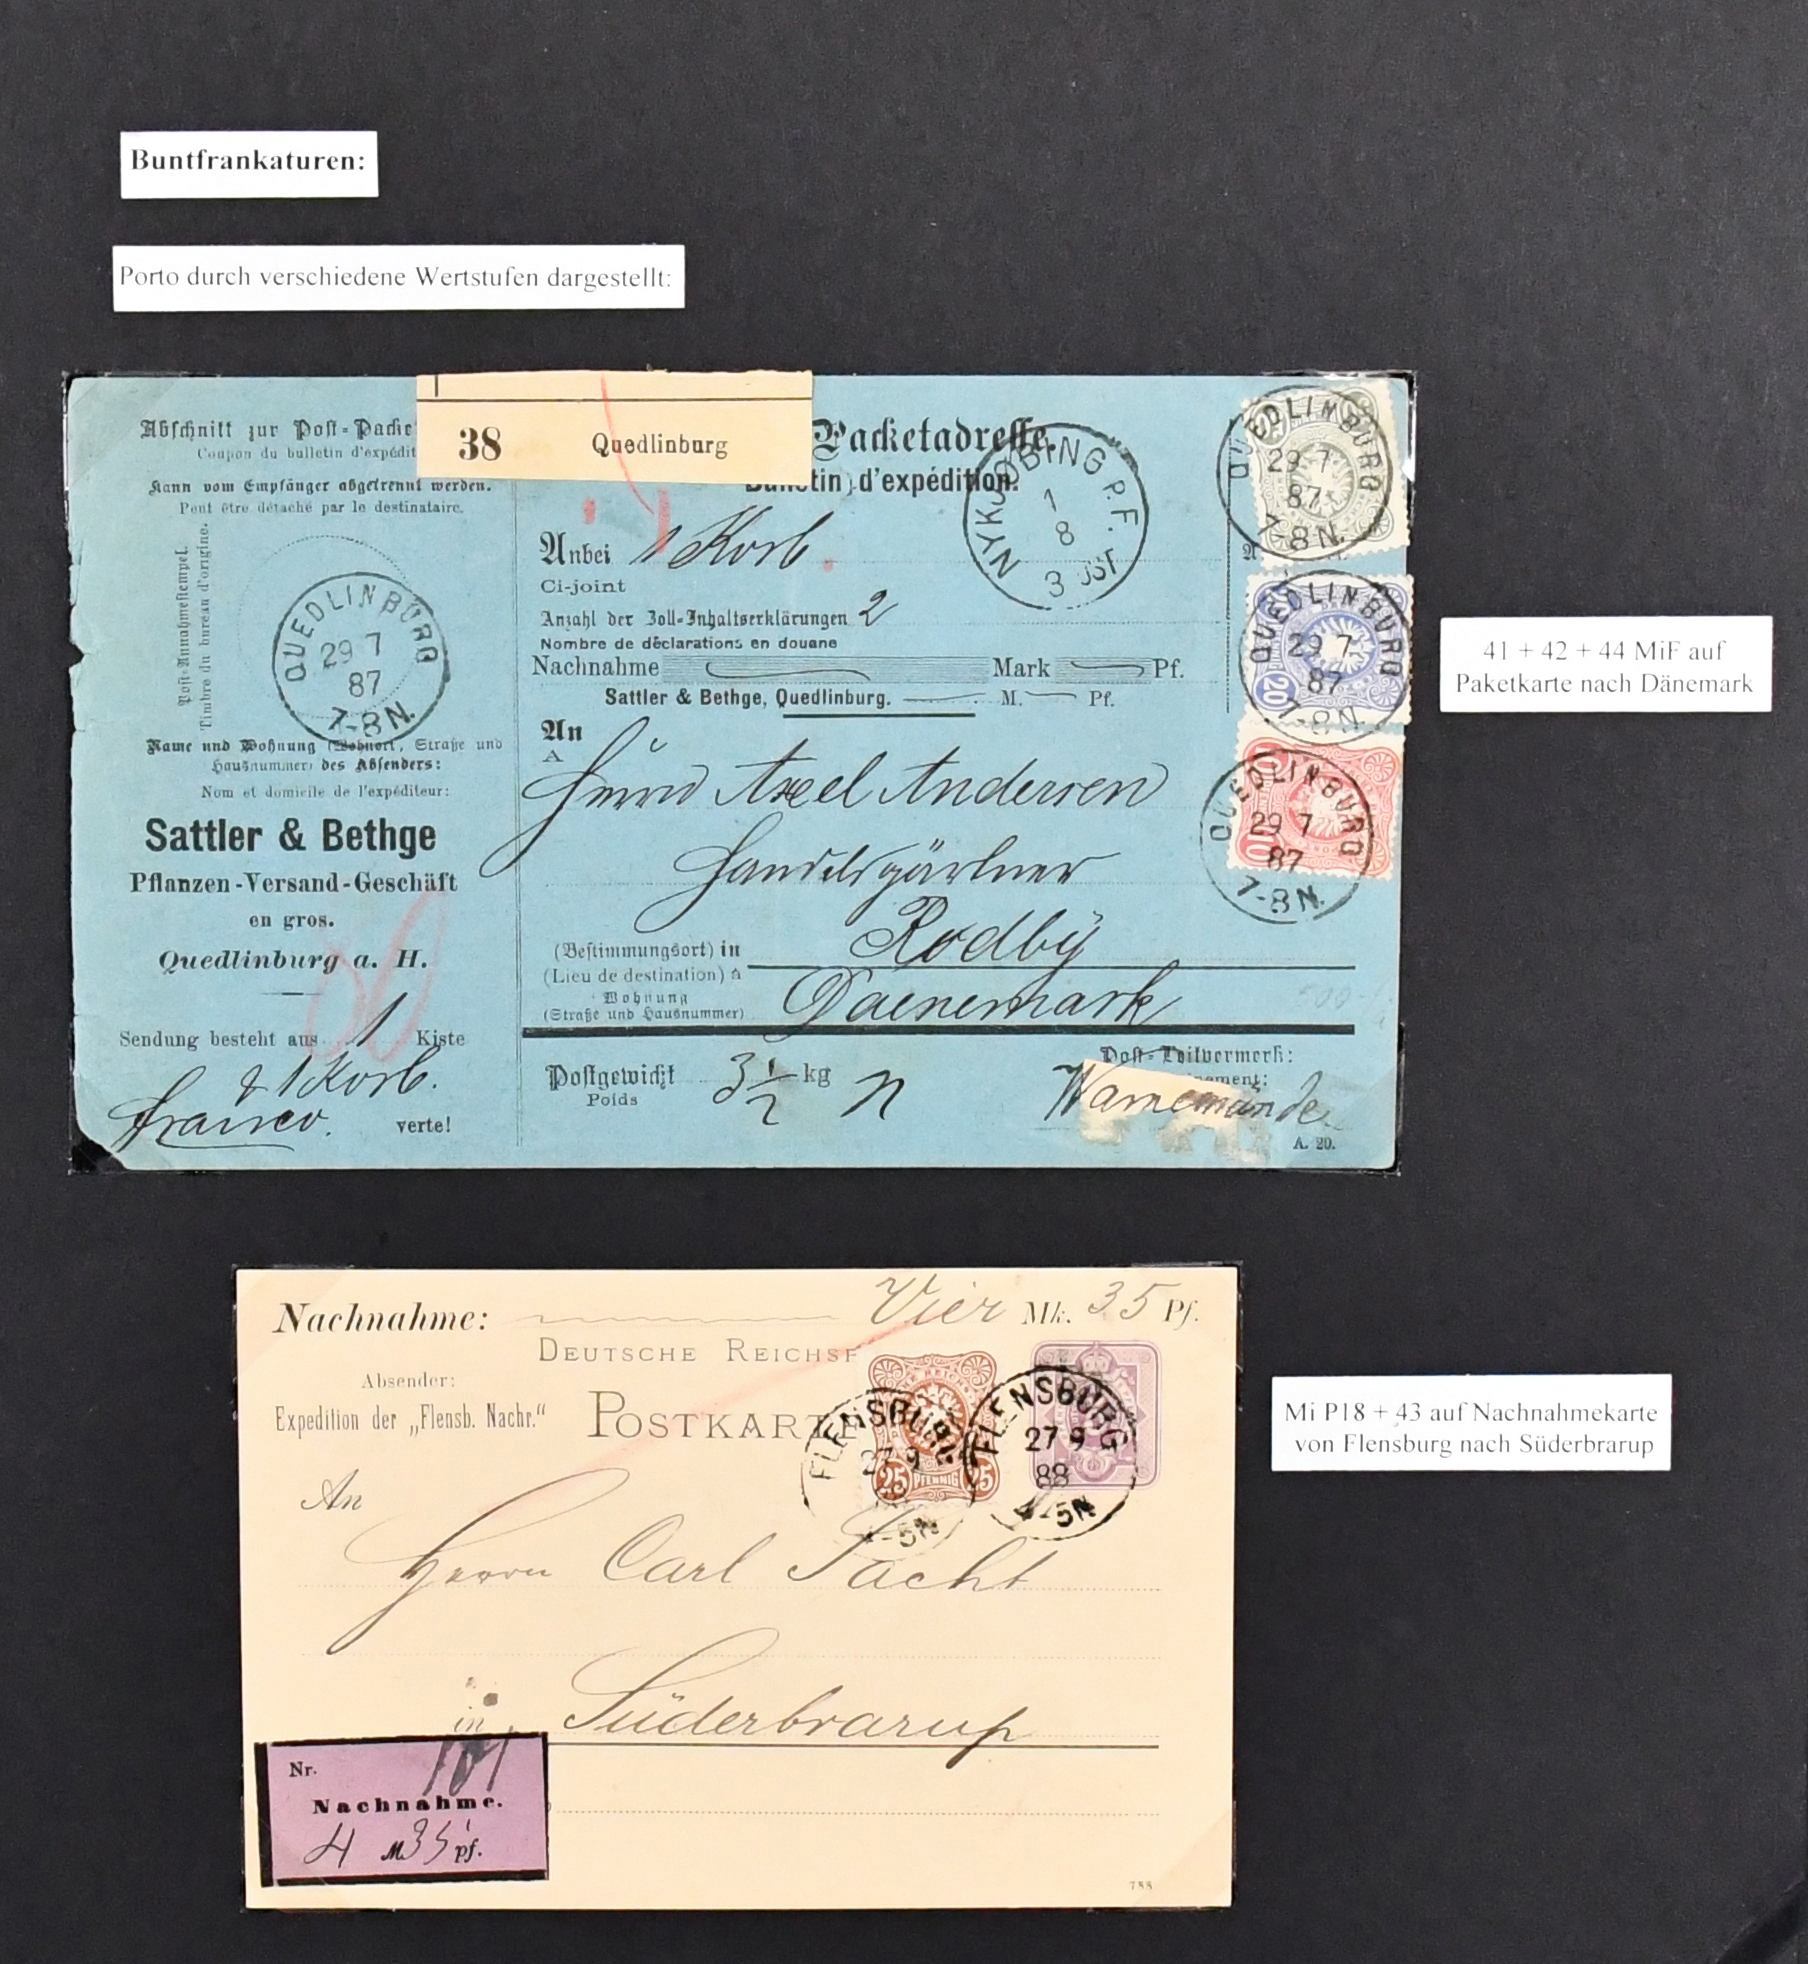 Buntfrankaturen:
Porto durch verschiedene Wertstufen dargestellt:
Abschnitt zur Post-Packe
Coupon du bulletin d'expédit
Kann vom Empfänger abgetrennt werden.
Peut être détaché par le destinataire.
Post-Annahmestempel.
Timbre du bureau d'origine.
QUEDLINBURG
29 7
87
7-8 N.
Name und Wohnung (Wohnort, Straße und
Hausnummer) des Absenders:
Nom et domicile de l'expéditeur:
Sattler & Bethge
Pflanzen-Versand-Geschäft
en gros.
Quedlinburg a. H.
Sendung besteht aus 1 Kiste
& 1 Korb.
franco. verte!
38 Quedlinburg
Packetadresse.
tin d'expédition.
NYKJØBING P. F.
1
8
3 POST
Anbei 1 Korb
Ci-joint
Anzahl der Zoll-Inhaltserklärungen 2
Nombre de déclarations en douane
Nachnahme Mark Pf.
Sattler & Bethge, Quedlinburg. M. Pf.
An
A
Herrn Axel Andersen
Handelsgärtner
(Bestimmungsort) in Rodby
(Lieu de destination) à
Wohnung Daenemark
(Straße und Hausnummer)
Postgewicht 3 1/2 kg n
Poids
Post-Leitvermerk:
nement:
Warnemünde
A. 20.
QUEDLINBURG
29 7
87
7-8 N.
QUEDLINBURG
29 7
87
7-8 N.
20
QUEDLINBURG
29 7
87
7-8 N.
10
10
41 + 42 + 44 MiF auf
Paketkarte nach Dänemark
Nachnahme: Vier Mk. 35 Pf.
DEUTSCHE REICHSP
Absender:
Expedition der „Flensb. Nachr."
POSTKARTE
25 PFENNIG 25
FLENSBURG
27 9
-5N
FLENSBURG
27 9
88
4-5N
An
Herrn Carl Jacht
in Süderbrarup
Nr.
Nachnahme.
4 M 35 pf.
788
Mi P18 + 43 auf Nachnahmekarte
von Flensburg nach Süderbrarup